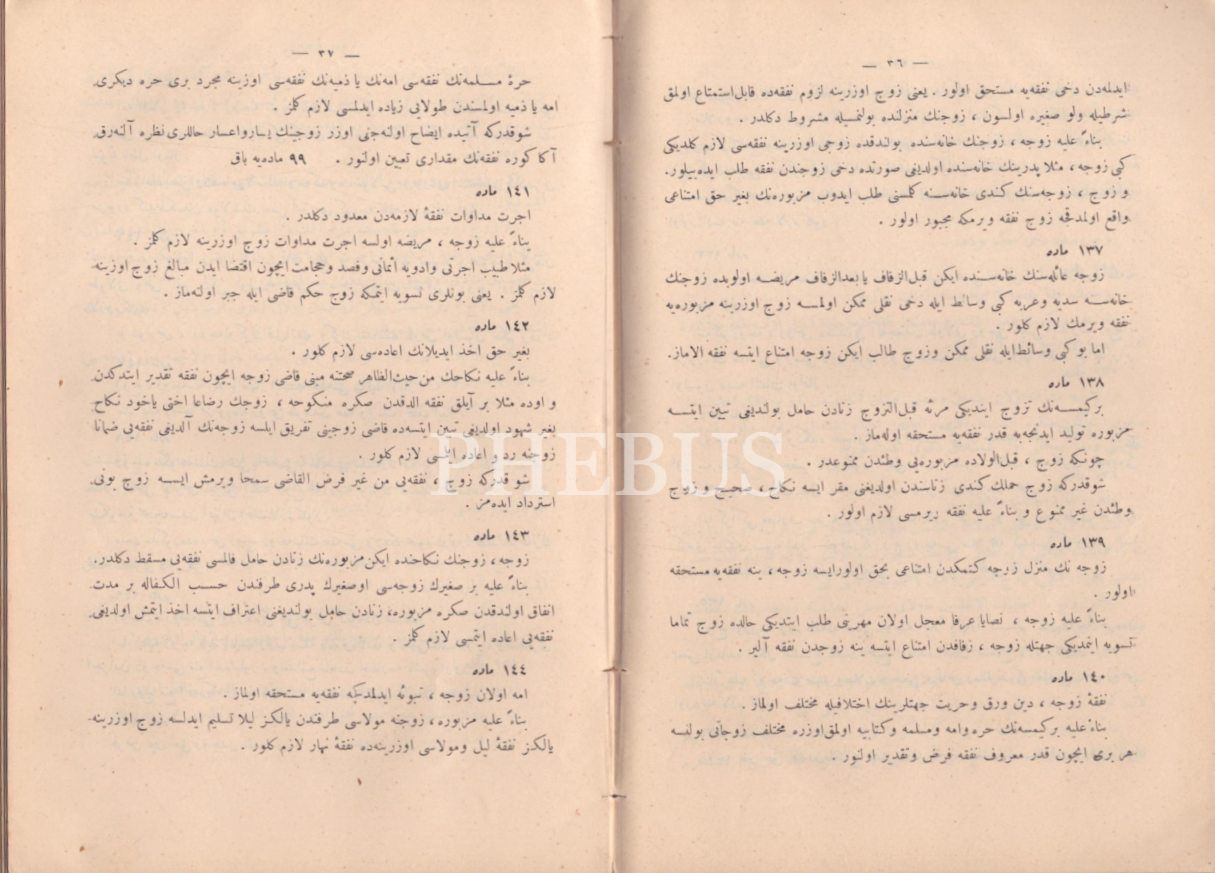 — ٣٦ —
ايدلمه‌دن دخى نفقه‌يه مستحق اولور . يعنى زوج اوزرينه لزوم نفقه‌ده قابل استمتاع اولمق
شرطيله ولو صغيره اولسون ، زوجنك منزلنده بولنمسيله مشروط دكلدر .
بناءً عليه زوجه ، زوجنك خانه‌سنده بولندقده زوجى اوزرينه نفقه‌سى لازم كلديكى
كبى زوجه ، مثلا پدرينك خانه‌سنده اولديغى صورتده دخى زوجندن نفقه طلب ايده‌بيلور.
و زوج ، زوجه‌سنك كندى خانه‌سنه كلمسنى طلب ايدوب مزبوره‌نك بغير حق امتناعى
واقع اولمدقجه زوج نفقه ويرمكه مجبور اولور .
١٣٧ ماده
زوجه عائله‌سنك خانه‌سنده ايكن قبل‌الزفاف يا بعدالزفاف مريضه اولوبده زوجنك
خانه‌سنه سديه وعربه كبى وسائط ايله دخى نقلى ممكن اولمسه زوج اوزرينه مزبوره‌يه
نفقه ويرمك لازم كلور .
اما بو كبى وسائط ايله نقلى ممكن وزوج طالب ايكن زوجه امتناع ايتسه نفقه الاماز.
١٣٨ ماده
بركيمسه‌نك تزوج ايتديكى مرئه قبل‌التزوج زنادن حامل بولنديغى تبين ايتسه
مزبوره توليد ايدنجه‌يه قدر نفقه‌يه مستحقه اوله‌ماز .
چونكه زوج ، قبل‌الولاده مزبوره‌يى وطئدن ممنوعدر .
شوقدركه زوج حملك كندى زناسندن اولديغنى مقر ايسه نكاح ، صحيح و زوج
وطئدن غير ممنوع و بناءً عليه نفقه ويرمسى لازم اولور .
١٣٩ ماده
زوجه نك منزل زوجه كتمكدن امتناعى بحق اولورايسه زوجه ، ينه نفقه‌يه مستحقه
اولور .
بناءً عليه زوجه ، نصايا عرفا معجل اولان مهرينى طلب ايتديكى حالده زوج تماما
تسويه ايتمديكى جهتله زوجه ، زفافدن امتناع ايتسه ينه زوجدن نفقه آلير .
١٤٠ ماده
نفقهٔ زوجه ، دين ورق وحريت جهتلرينك اختلافيله مختلف اولماز .
بناءً عليه بركيمسه‌نك حره وامه ومسلمه وكتابيه اولمق اوزره مختلف زوجاتى بولنسه
هر برى ايچون قدر معروف نفقه فرض وتقدير اولنور .
— ٣٧ —
حرهٔ مسلمه‌نك نفقه‌سى امه‌نك يا ذميه‌نك نفقه‌سى اوزينه مجرد برى حره ديكرى
امه يا ذميه اولمسندن طولايى زياده ايدلمسى لازم كلمز .
شوقدركه آتيده ايضاح اولنه‌جنى اوزر زوجينك يسار واعسار حاللرى نظره آلنه‌رق
آكا كوره نفقه‌نك مقدارى تعيين اولنور . ٩٩ ماده‌يه باق
١٤١ ماده
اجرت مداوات نفقهٔ لازمه‌دن معدود دكلدر .
بناءً عليه زوجه ، مريضه اولسه اجرت مداوات زوج اوزرينه لازم كلمز .
مثلا طبيب اجرتى وادويه أثمانى وفصد وحجامت ايچون اقتضا ايدن مبالغ زوج اوزينه
لازم كلمز . يعنى بونلرى تسويه ايتمكه زوج حكم قاضى ايله جبر اولنه‌ماز .
١٤٢ ماده
بغير حق اخذ ايديلانك اعاده‌سى لازم كلور .
بناءً عليه نكاحك من‌حيث‌الظاهر صحتنه مبنى قاضى زوجه ايچون نفقه تقدير ايتدكدن
و اوده مثلا بر آيلق نفقه الدقدن صكره منكوحه ، زوجك رضاعا اختى ياخود نكاح
بغير شهود اولديغى تبين ايتسه‌ده قاضى زوجينى تفريق ايلسه زوجه‌نك آلديغى نفقه‌يى ضمانا
زوجنه رد و اعاده ايتلسى لازم كلور .
شو قدركه زوج ، نفقه‌يى من غير فرض القاضى سمحا ويرمش ايسه زوج بونى
استرداد ايده‌مز .
١٤٣ ماده
زوجه ، زوجنك نكاحنده ايكن مزبوره‌نك زنادن حامل قالمسى نفقه‌يى مسقط دكلدر.
بناءً عليه بر صغيرك زوجه‌سى اوصغيرك پدرى طرفندن حسب الكفاله بر مدت
انفاق اولندقدن صكره مزبوره، زنادن حامل بولنديغنى اعتراف ايتسه اخذ ايتمش اولديغى
نفقه‌يى اعاده ايتمسى لازم كلمز .
١٤٤ ماده
امه اولان زوجه ، تبوئه ايدلمدكچه نفقه‌يه مستحقه اولماز .
بناءً عليه مزبوره ، زوجنه مولاسى طرفندن يالكز ليلا تسليم ايدلسه زوج اوزرينه
يالكز نفقهٔ ليل ومولاسى اوزرينه‌ده نفقهٔ نهار لازم كلور .
PHEBUS